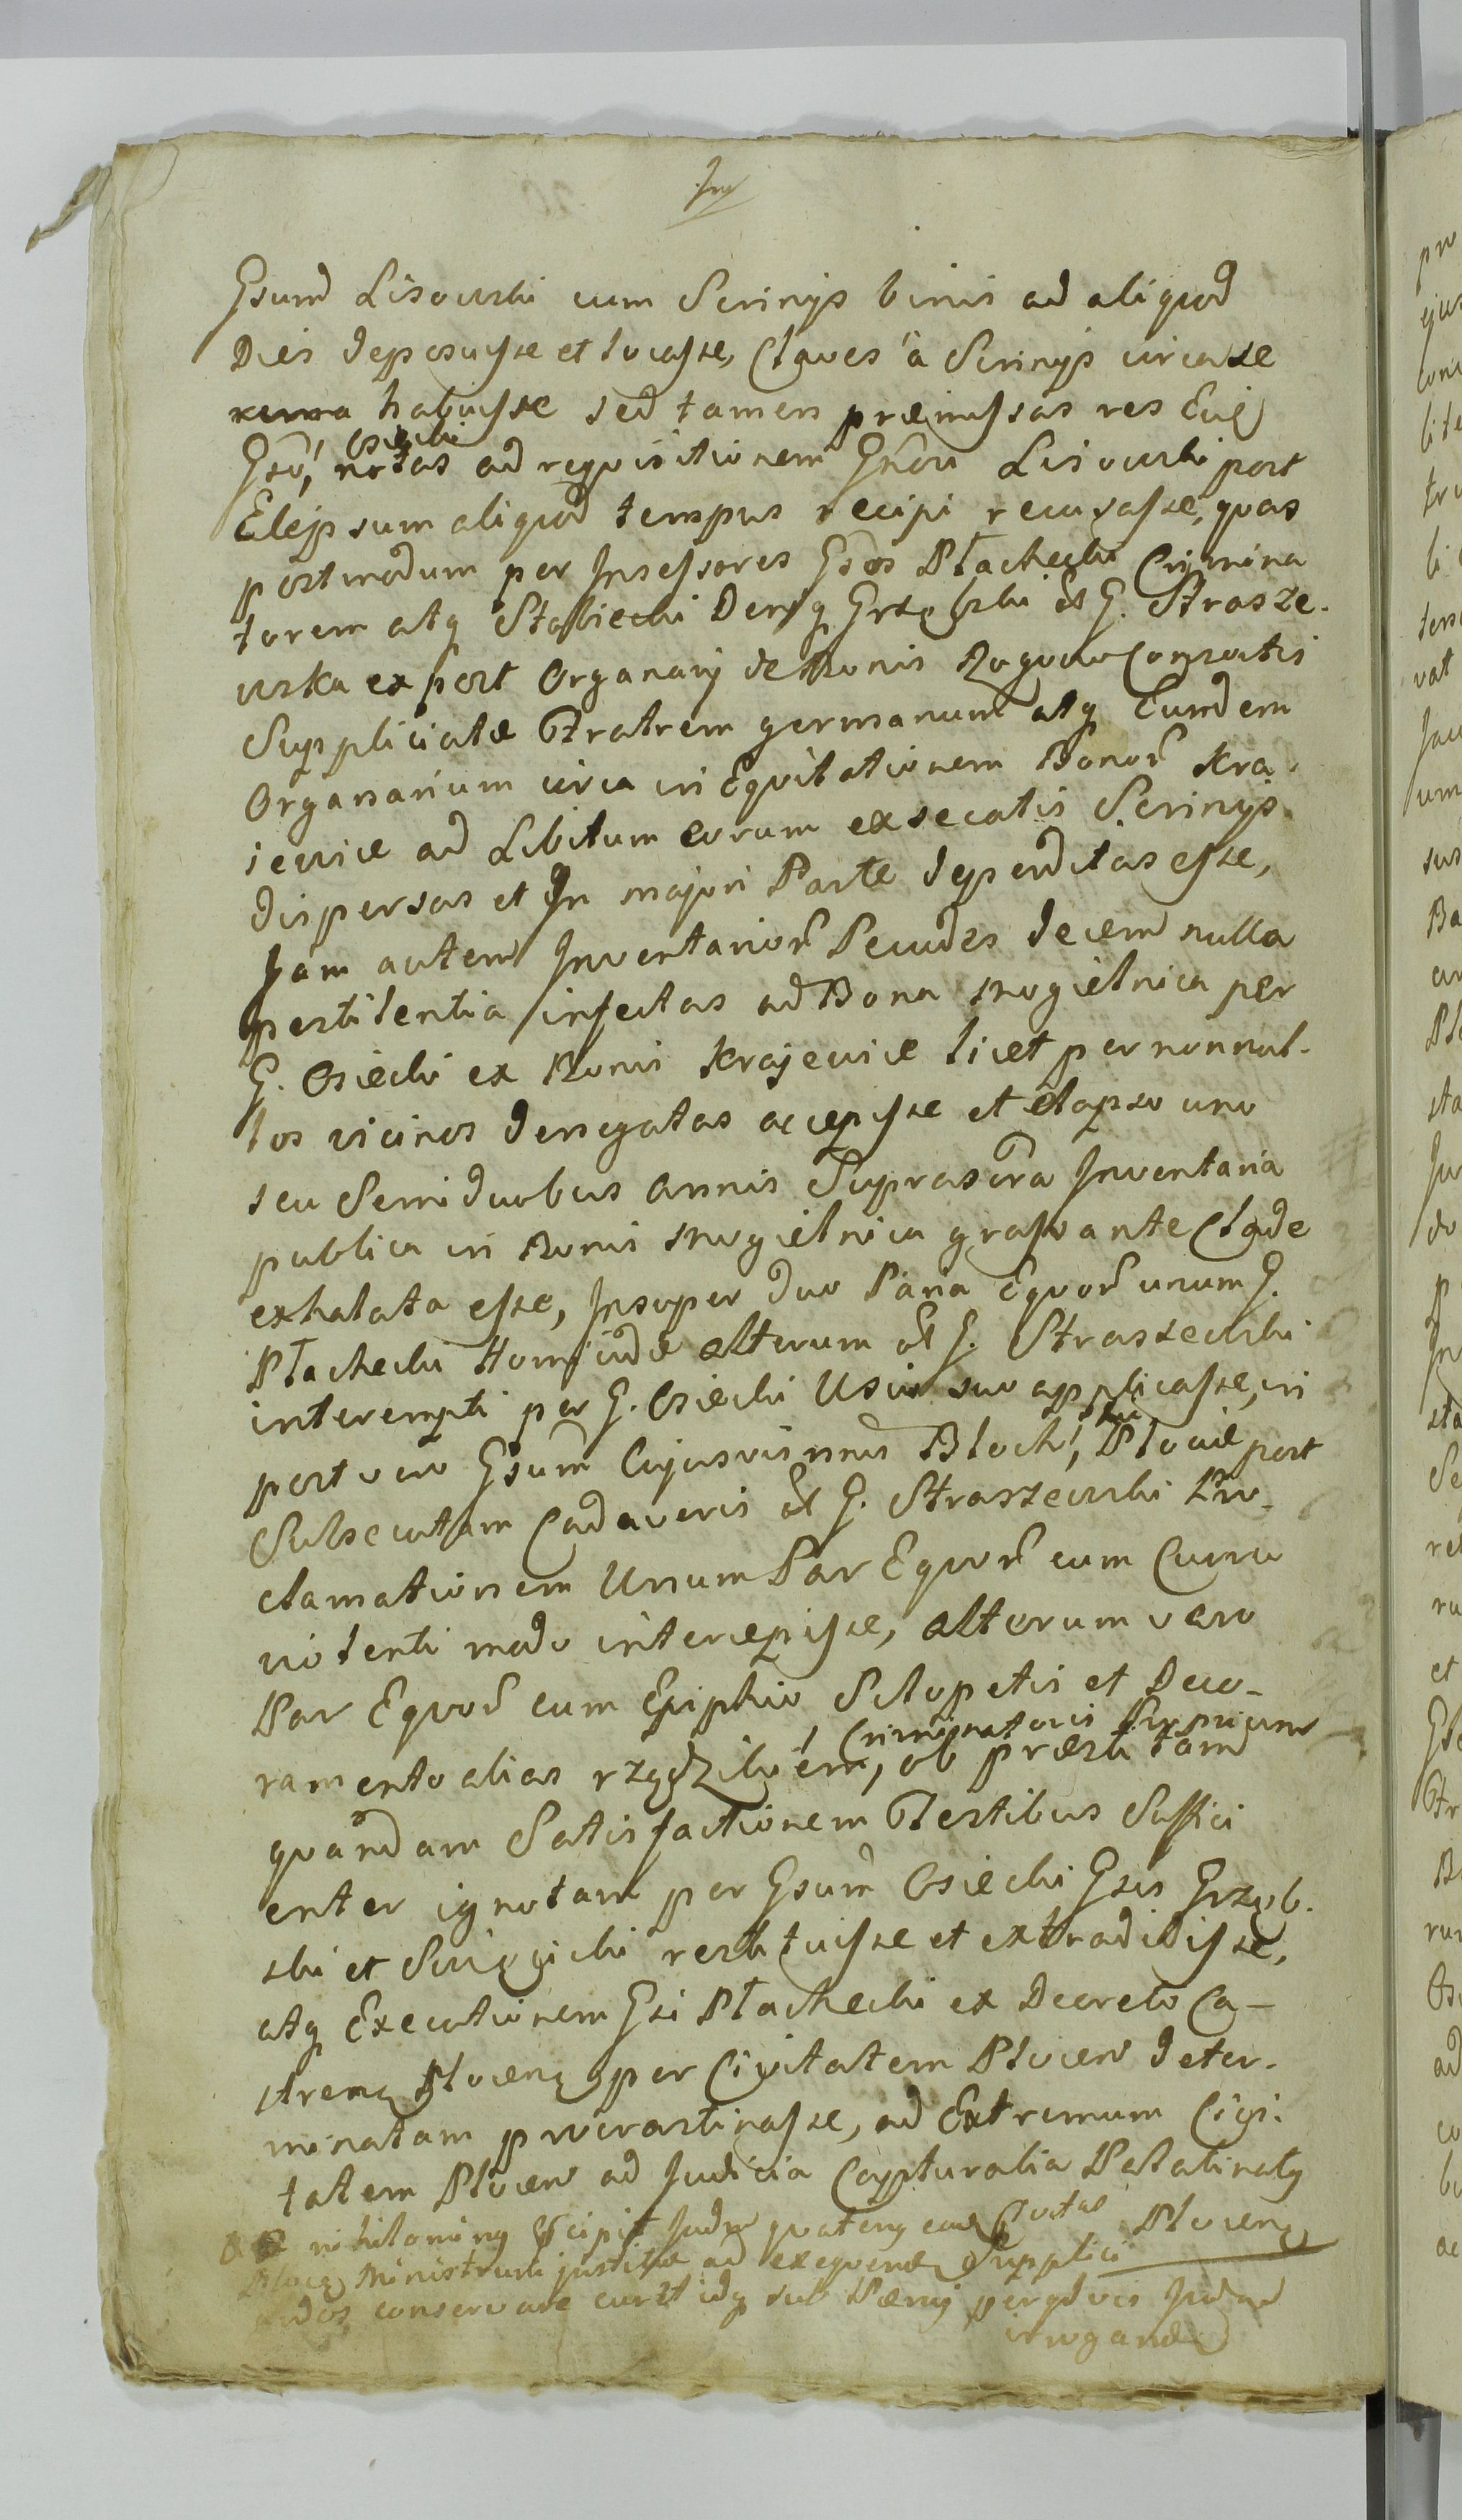 Gsum Lisowski cum Scrinijs binis ad aliquod
Dies deposuisse et locasse, Claves a Scrinijs circa se
habuisse sed tamen præmissas res
Osiecki
notas ad requisitionem Lisowski post
Elapsum aliquod tempus recipi recusasse, quas
postmodum per Insessores Gsos Płachecki Crimina
torem atq Stabiecki Grzębski et G. Strasze-
wska ex post Organarij de Bonis Rogowo Consortis
Suppliciatæ Fratrem germanum atq Eundem
Organarium circa in Equitationem Bonor Kra-
iewice ad Libitum eorum exsecatis Scrinijs
dispersas et In majori Parte deperditas esse,
Jam autem Inventarior Pecudes decem nulla
pestilentia infectas ad Bona Mogielnica per
G. Osiecki ex Bonis Krajewice licet per nonnul-
los vicinos denegatas accepisse et elapso uno
seu Semi duobus annis Suprascra Inventaria
publica in Bonis Mogielnica grassante Clade
exhalata esse, Insuper duo Paria Equor unum G.
Płachecki Homicidæ alterum G. Straszewski
interempti per G. Osiecki Usui suo applicasse, in
post vero Gsum Cujusvis nnis Plociæ post
Subsecutam Cadaveris G. Straszewski Pro-
clamationem Unum Par Equor cum Curru
violenti modo intercepisse, alterum vero
Par Equor cum Ephipio Sclopetis et Deco-
Criminatoris
ramento alias rzędzikiem, ob præstitam
quandam Satisfactionem Testibus Suffici
enter ignotam per Gsum Osiecki Gsis Grzęb-
ski et restituisse et extradidisse,
atq Executionem Gsi Płachecki ex Decreto Ca-
strenq Plocenq per Civitatem Plocen deter-
minatam procrastinasse, ad Extremum Civi-
tatem Plocen ad Judicia Capturalia Palatinatq
nihilominq quatenq Plocenq
Ministrum justitiæ ad exequend Supplici
conservare curet idq sub Pænis Judm
irrogand